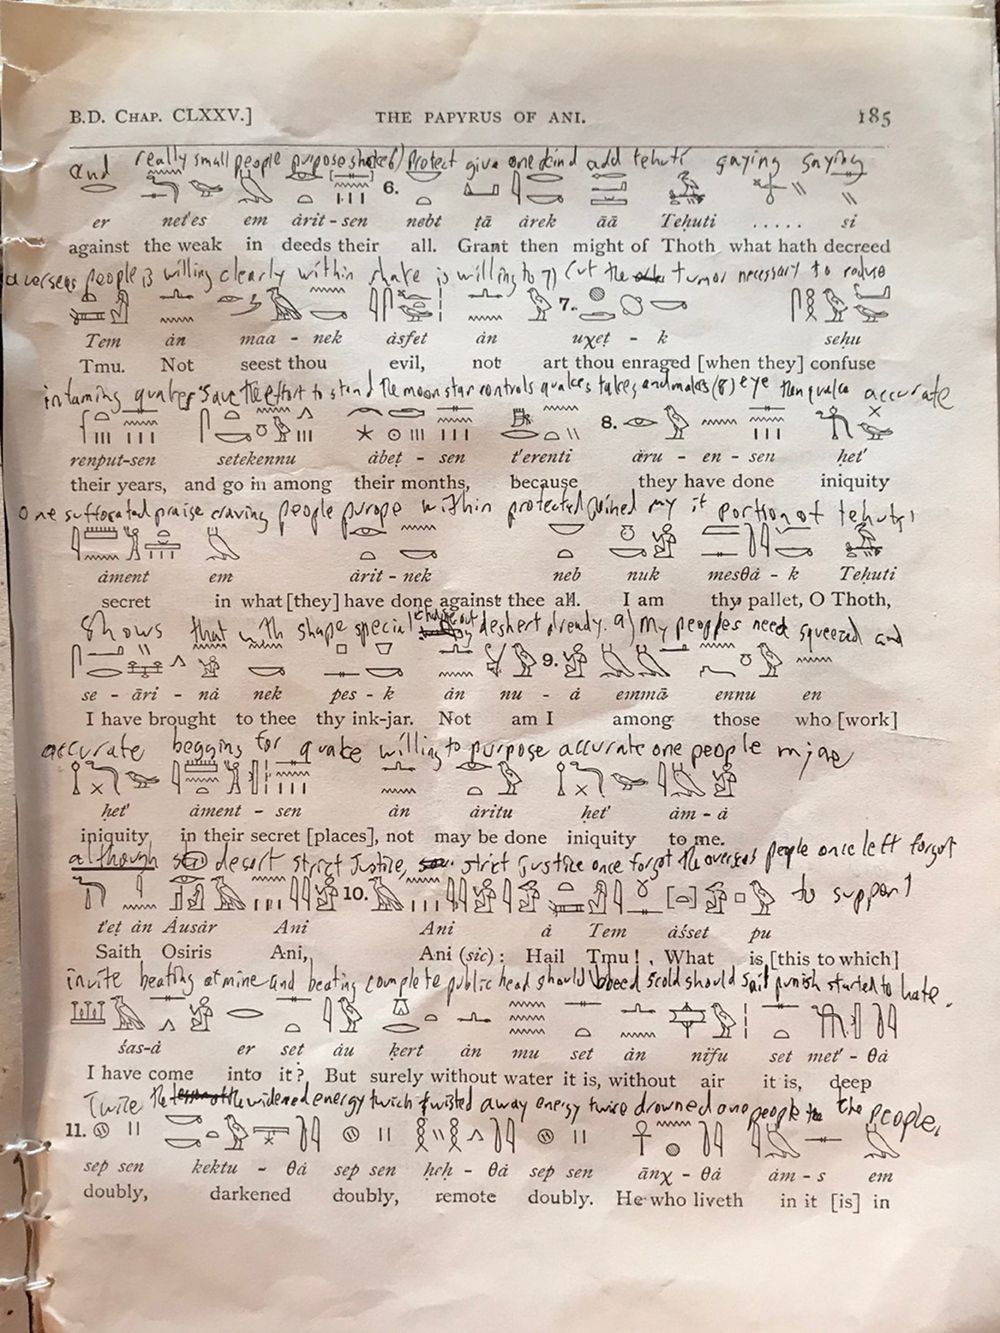 B.D. Chap. CLXXV.] THE PAPYRUS OF ANI. 185
and really small people purpose protect give one kind add tehuti saying saying
6.
er neṭ'es em ȧrit - sen nebt ṭā ȧrek āā Teḥuti ..... si
against the weak in deeds their all. Grant then might of Thoth what hath decreed
overseas people is willing clearly within shake is willing to 7) cut the tumor necessary to reduce
7.
Tem ȧn maa - nek ȧsfet ȧn uχeṭ - k sehu
Tmu. Not seest thou evil, not art thou enraged [when they] confuse
in taming quakes save the effort to stand the moon star controls quakes takes and makes (8) eye then quake accurate
8.
renput-sen setekennu ȧbeṭ - sen t'erenti ȧru - en - sen ḥet'
their years, and go in among their months, because they have done iniquity
one suffocated praise craving people purpose within protected joined my it portion of tehuti
ȧment em ȧrit - nek neb nuk mesθȧ - k Teḥuti
secret in what [they] have done against thee all. I am thy pallet, O Thoth,
shows that with shape special deshert already. 9) my peoples need squeezed and
9.
se - āri - nȧ nek pes - k ȧn nu - ȧ emmā ennu en
I have brought to thee thy ink-jar. Not am I among those who [work]
accurate begging for quake willing to purpose accurate one people mine
ḥet' ȧment - sen ȧn ȧritu ḥet' ȧm - ȧ
iniquity in their secret [places], not may be done iniquity to me.
although desert strict justice, strict justice once forgot the overseas people once left forgot
10. to support
t'eṭ ȧn Ȧusȧr Ani Ani ȧ Tem ȧśset pu
Saith Osiris Ani, Ani (sic): Hail Tmu! , What is [this to which]
invite beating at mine and beating complete public head should bleed scold should spit punish started to hate.
śas-ȧ er set ȧu ḳert ȧn mu set ȧn nifu set met' - θȧ
I have come into it? But surely without water it is, without air it is, deep
Twice the widened energy twich twisted away energy twice drowned one people the people.
11.
sep sen kektu - θȧ sep sen ḥeḥ - θȧ sep sen ānχ - θȧ ȧm - s em
doubly, darkened doubly, remote doubly. He who liveth in it [is] in